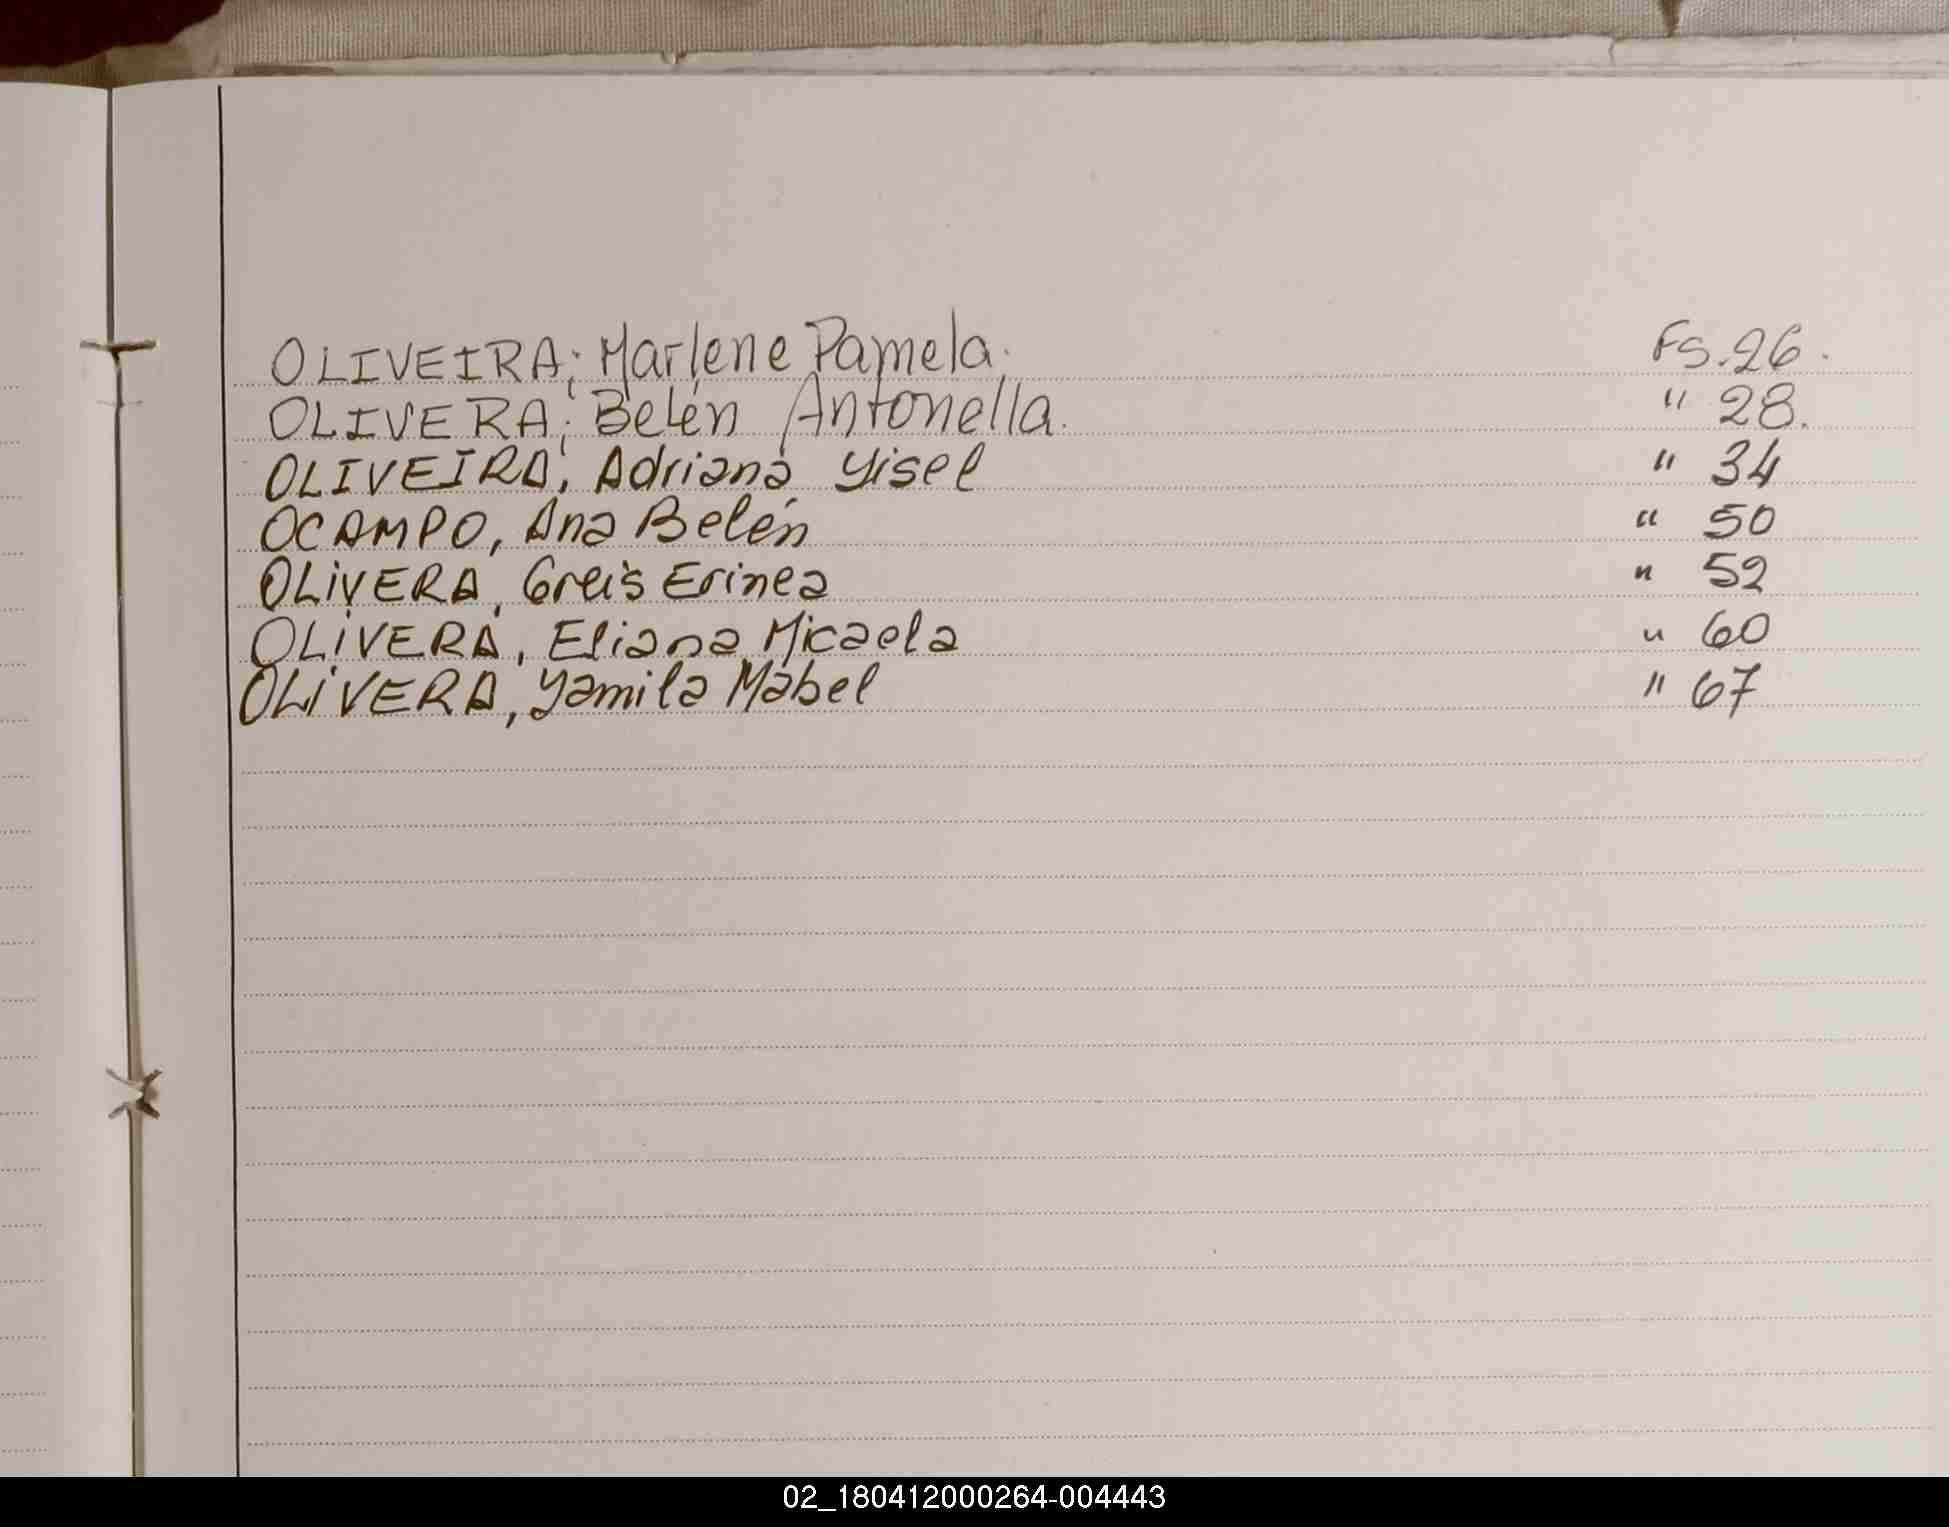 OLIVEIRA; Marlene Pamela. Fs. 26.
OLIVERA; Belén Antonella. " 28.
OLIVEIRA, Adriana Yisel " 34
OCAMPO, Ana Belén " 50
OLIVERA, Greis Erinea " 52
OLIVERA, Eliana Micaela " 60
OLIVERA, Yamila Mabel " 67
02_180412000264-004443